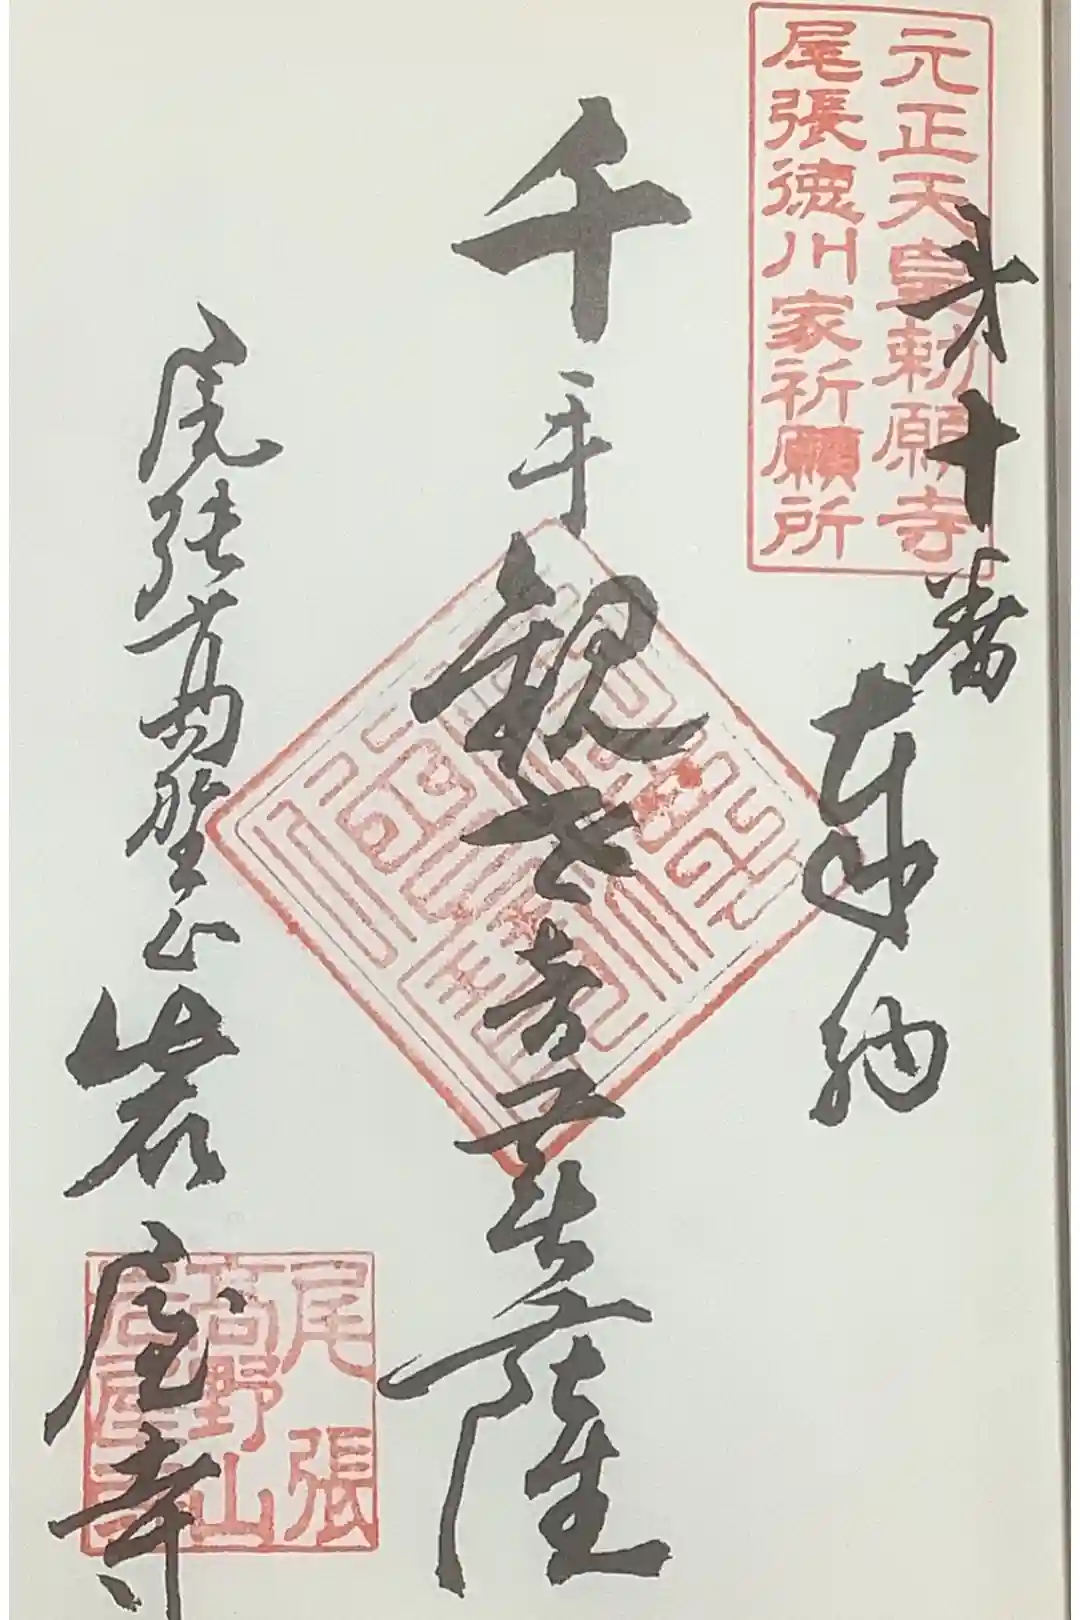 元正天皇勅願寺
尾張徳川家祈願所
才十番
奉納
千手観世音菩薩
尾張高野山
岩屋寺
尾張
高野山
岩屋寺